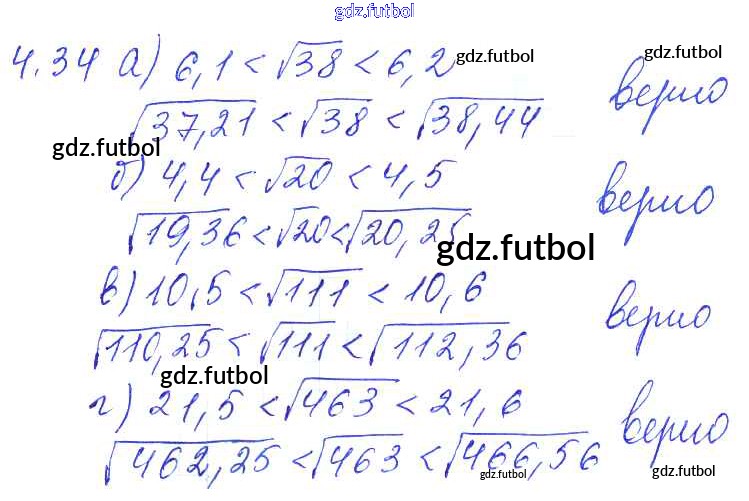 gdz.futbol
4.34 а) 6,1 < √38 < 6,2 gdz.futbol gdz.futbol
верно
√37,21 < √38 < √38,44
gdz.futbol
б) 4,4 < √20 < 4,5
верно
√19,36 < √20 < √20,25
gdz.futbol
в) 10,5 < √111 < 10,6
верно
√110,25 < √111 < √112,36
gdz.futbol
г) 21,5 < √463 < 21,6
верно
√462,25 < √463 < √466,56
gdz.futbol gdz.futbol